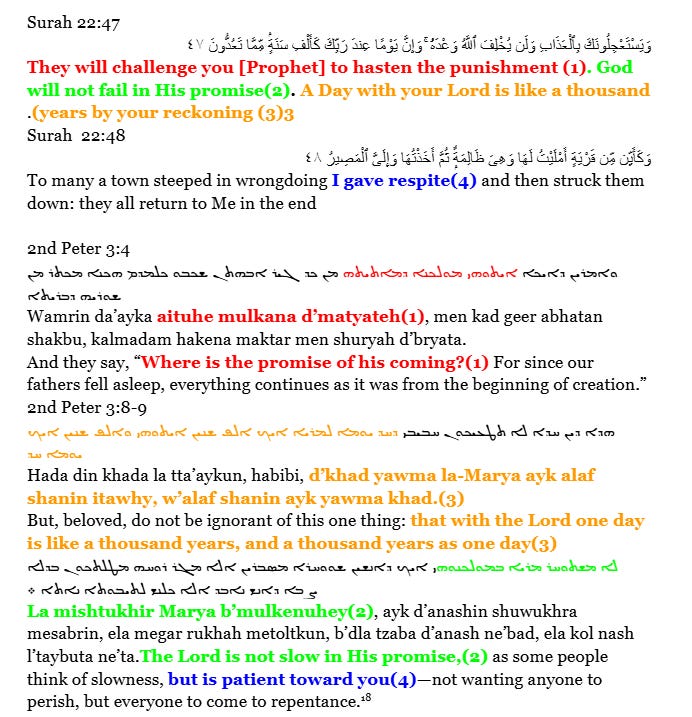 Surah 22:47
وَيَسْتَعْجِلُونَكَ بِٱلْعَذَابِ وَلَن يُخْلِفَ ٱللَّهُ وَعْدَهُۥ ۚ وَإِنَّ يَوْمًا عِندَ رَبِّكَ كَأَلْفِ سَنَةٍۢ مِّمَّا تَعُدُّونَ ٤٧
They will challenge you [Prophet] to hasten the punishment (1). God
will not fail in His promise(2). A Day with your Lord is like a thousand
.(years by your reckoning (3)3
Surah 22:48
وَكَأَيِّن مِّن قَرْيَةٍ أَمْلَيْتُ لَهَا وَهِىَ ظَالِمَةٌۭ ثُمَّ أَخَذْتُهَا وَإِلَىَّ ٱلْمَصِيرُ ٤٨
To many a town steeped in wrongdoing I gave respite(4) and then struck them
down: they all return to Me in the end
2nd Peter 3:4
ܘܐܡܪܝܢ ܕܐܝܟܐ ܐܝܬܘܗܝ ܡܘܠܟܢܐ ܕܡܐܬܝܬܗ ܡܢ ܟܕ ܓܝܪ ܐܒܗܬܢ ܫܟܒܘ ܟܠܡܕܡ ܗܟܢܐ ܡܟܬܪ ܡܢ
ܫܘܪܝܗ ܕܒܪܝܬܐ
Wamrin da’ayka aituhe mulkana d’matyateh(1), men kad geer abhatan
shakbu, kalmadam hakena maktar men shuryah d’bryata.
And they say, “Where is the promise of his coming?(1) For since our
fathers fell asleep, everything continues as it was from the beginning of creation.”
2nd Peter 3:8-9
ܗܕܐ ܕܝܢ ܚܕܐ ܠܐ ܬܛܥܝܟܘܢ ܚܒܝܒܝ ܕܚܕ ܝܘܡܐ ܠܡܪܝܐ ܐܝܟ ܐܠܦ ܫܢܝܢ ܐܝܬܘܗܝ ܘܐܠܦ ܫܢܝܢ ܐܝܟ
ܝܘܡܐ ܚܕ
Hada din khada la tta’aykun, habibi, d’khad yawma la-Marya ayk alaf
shanin itawhy, w’alaf shanin ayk yawma khad.(3)
But, beloved, do not be ignorant of this one thing: that with the Lord one day
is like a thousand years, and a thousand years as one day(3)
ܠܐ ܡܫܬܘܚܪ ܡܪܝܐ ܒܡܘܠܟܢܘܗܝ ܐܝܟ ܕܐܢܫܝܢ ܫܘܚܪܐ ܡܣܒܪܝܢ ܐܠܐ ܡܓܪ ܪܘܚܗ ܡܛܠܬܟܘܢ ܒܕܠܐ
ܨܒܐ ܕܐܢܫ ܢܐܒܕ ܐܠܐ ܟܠܢܫ ܠܬܝܒܘܬܐ ܢܐܬܐ ܀
La mishtukhir Marya b’mulkenuhey(2), ayk d’anashin shuwukhra
mesabrin, ela megar rukhah metoltkun, b’dla tzaba d’anash ne’bad, ela kol nash
l’taybuta ne’ta.The Lord is not slow in His promise,(2) as some people
think of slowness, but is patient toward you(4)—not wanting anyone to
perish, but everyone to come to repentance.¹⁸